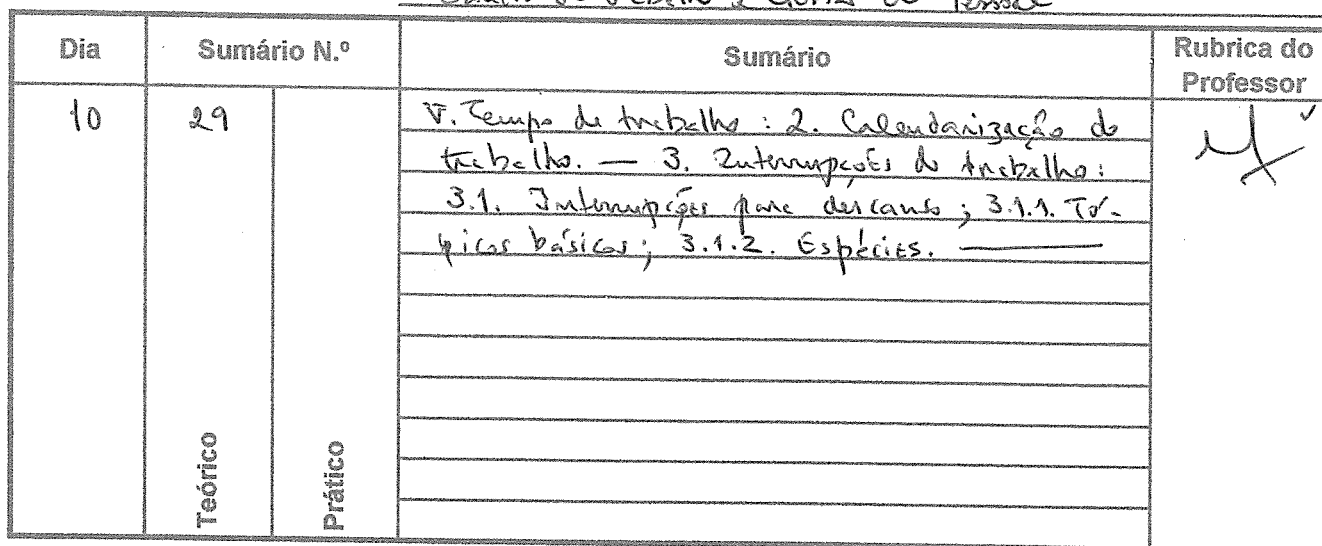 Pessoal
Dia
Sumário N.º
Sumário
Rubrica do
Professor
10
29
V. Tempo de trabalho : 2. Calendarização do
trabalho. — 3. Interrupções do trabalho:
3.1. Interrupções para descanso ; 3.1.1. Tó-
picos básicos; 3.1.2. Espécies. —
Teórico
Prático